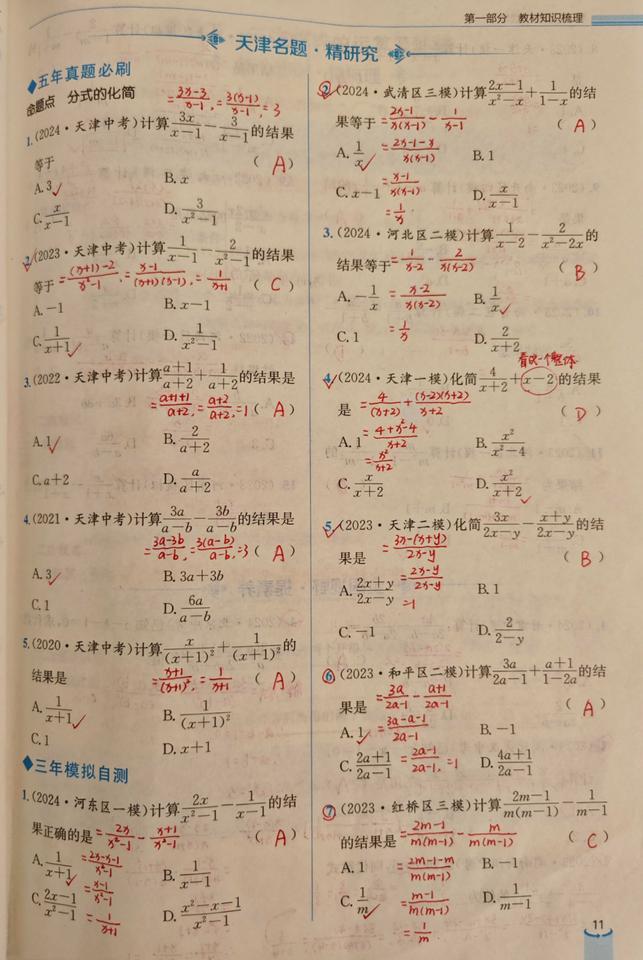 第一部分 教材知识梳理
天津名题·精研究
◆五年真题必刷
命题点 分式的化简
=(3x-3)/(x-1)=3(x-1)/(x-1)=3
1.(2024·天津中考)计算3x/(x-1)-3/(x-1)的结果
等于 (A)
A.3✓ B.x
C.x/(x-1) D.3/(x²-1)
2.(2023·天津中考)计算1/(x-1)-2/(x²-1)的结果
等于=((x+1)-2)/(x²-1)=(x-1)/((x+1)(x-1))=1/(x+1) (C)
A.-1 B.x-1
C.1/(x+1)✓ D.1/(x²-1)
3.(2022·天津中考)计算(a+1)/(a+2)+1/(a+2)的结果是
=(a+1+1)/(a+2)=(a+2)/(a+2)=1 (A)
A.1✓ B.2/(a+2)
C.a+2 D.a/(a+2)
4.(2021·天津中考)计算3a/(a-b)-3b/(a-b)的结果是
=(3a-3b)/(a-b)=3(a-b)/(a-b)=3 (A)
A.3✓ B.3a+3b
C.1 D.6a/(a-b)
5.(2020·天津中考)计算x/(x+1)²+1/(x+1)²的
结果是 =(x+1)/(x+1)²=1/(x+1) (A)
A.1/(x+1)✓ B.1/(x+1)²
C.1 D.x+1
◆三年模拟自测
1.(2024·河东区一模)计算2x/(x²-1)-1/(x-1)的结
果正确的是=2x/(x²-1)-(x+1)/(x²-1) (A)
A.1/(x+1)✓ =(2x-x-1)/(x²-1) B.1/(x-1)
=(x-1)/(x²-1)
C.(2x-1)/(x²-1) =1/(x+1) D.(x²-x-1)/(x²-1)
2.(2024·武清区三模)计算(2x-1)/(x²-x)+1/(1-x)的结
果等于=(2x-1)/(x(x-1))-1/(x-1) (A)
A.1/x✓ =(2x-1-x)/(x(x-1)) B.1
C.x-1 =(x-1)/(x(x-1)) D.x/(x-1)
=1/x
3.(2024·河北区二模)计算1/(x-2)-2/(x²-2x)的
结果等于=1/(x-2)-2/(x(x-2)) (B)
A.-1/x =(x-2)/(x(x-2)) B.1/x✓
C.1 =1/x D.2/(x+2)
看成一个整体
4.(2024·天津一模)化简4/(x+2)+x-2的结果
是=4/(x+2)+(x-2)(x+2)/(x+2) (D)
A.1 =(4+x²-4)/(x+2) B.x²/(x²-4)
=x²/(x+2)
C.x/(x+2) D.x²/(x+2)✓
5.(2023·天津二模)化简3x/(2x-y)-(x+y)/(2x-y)的结
果是 =(3x-(x+y))/(2x-y) (B)
A.(2x+y)/(2x-y) =(2x-y)/(2x-y) B.1
=1
C.-1 D.2/(2-y)
6.(2023·和平区二模)计算3a/(2a-1)+(a+1)/(1-2a)的结
果是 =3a/(2a-1)-(a+1)/(2a-1) (A)
A.1✓ =(3a-a-1)/(2a-1) B.-1
C.(2a+1)/(2a-1) =(2a-1)/(2a-1)=1 D.(4a+1)/(2a-1)
7.(2023·红桥区三模)计算(2m-1)/(m(m-1))-1/(m-1)
的结果是=(2m-1)/(m(m-1))-m/(m(m-1)) (C)
A.1 =(2m-1-m)/(m(m-1)) B.-1
C.1/m✓ =(m-1)/(m(m-1)) D.1/(m-1)
=1/m
11